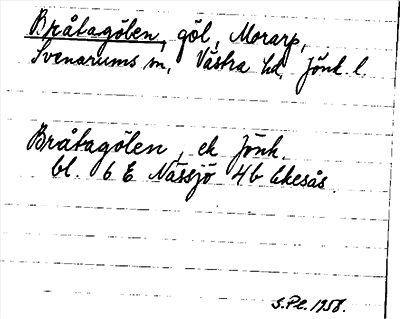 Bråtagölen, göl, Morarp,
Svenarums sn, Västra hd, Jönk. l.
Bråtagölen, ek Jönk.
bl. 6 E Nässjö 4b Ekesås
S.Pl. 1958.